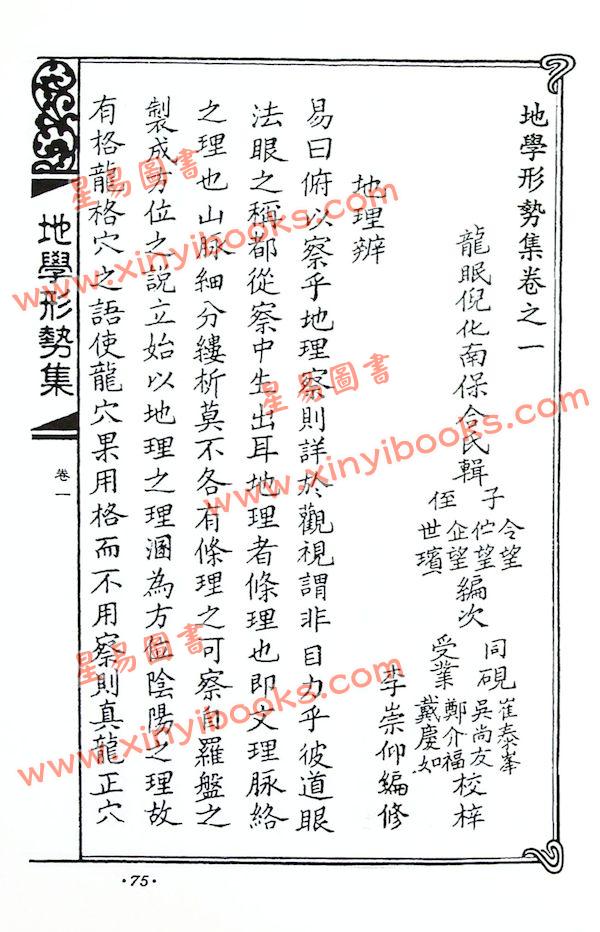 地學形勢集卷之一
龍眠倪化南保合民輯
子
侄
令望
伫望
企望
世璸
編次
同硯
受業
崔泰峯
吳尚友
鄭介福
戴慶如
校梓
李崇仰編修
地理辨
易曰俯以察乎地理察則詳於觀視謂非目力乎彼道眼
法眼之稱都從察中生出耳地理者條理也即文理脈絡
之理也山脈細分縷析莫不各有條理之可察自羅盤之
製成方位之説立始以地理之理溷為方位陰陽之理故
有格龍格穴之語使龍穴果用格而不用察則真龍正穴
地學形勢集
卷一
·75·
星易圖書
www.xinyibooks.com
星易圖書
www.xinyibooks.com
星易圖書
www.xinyibooks.com